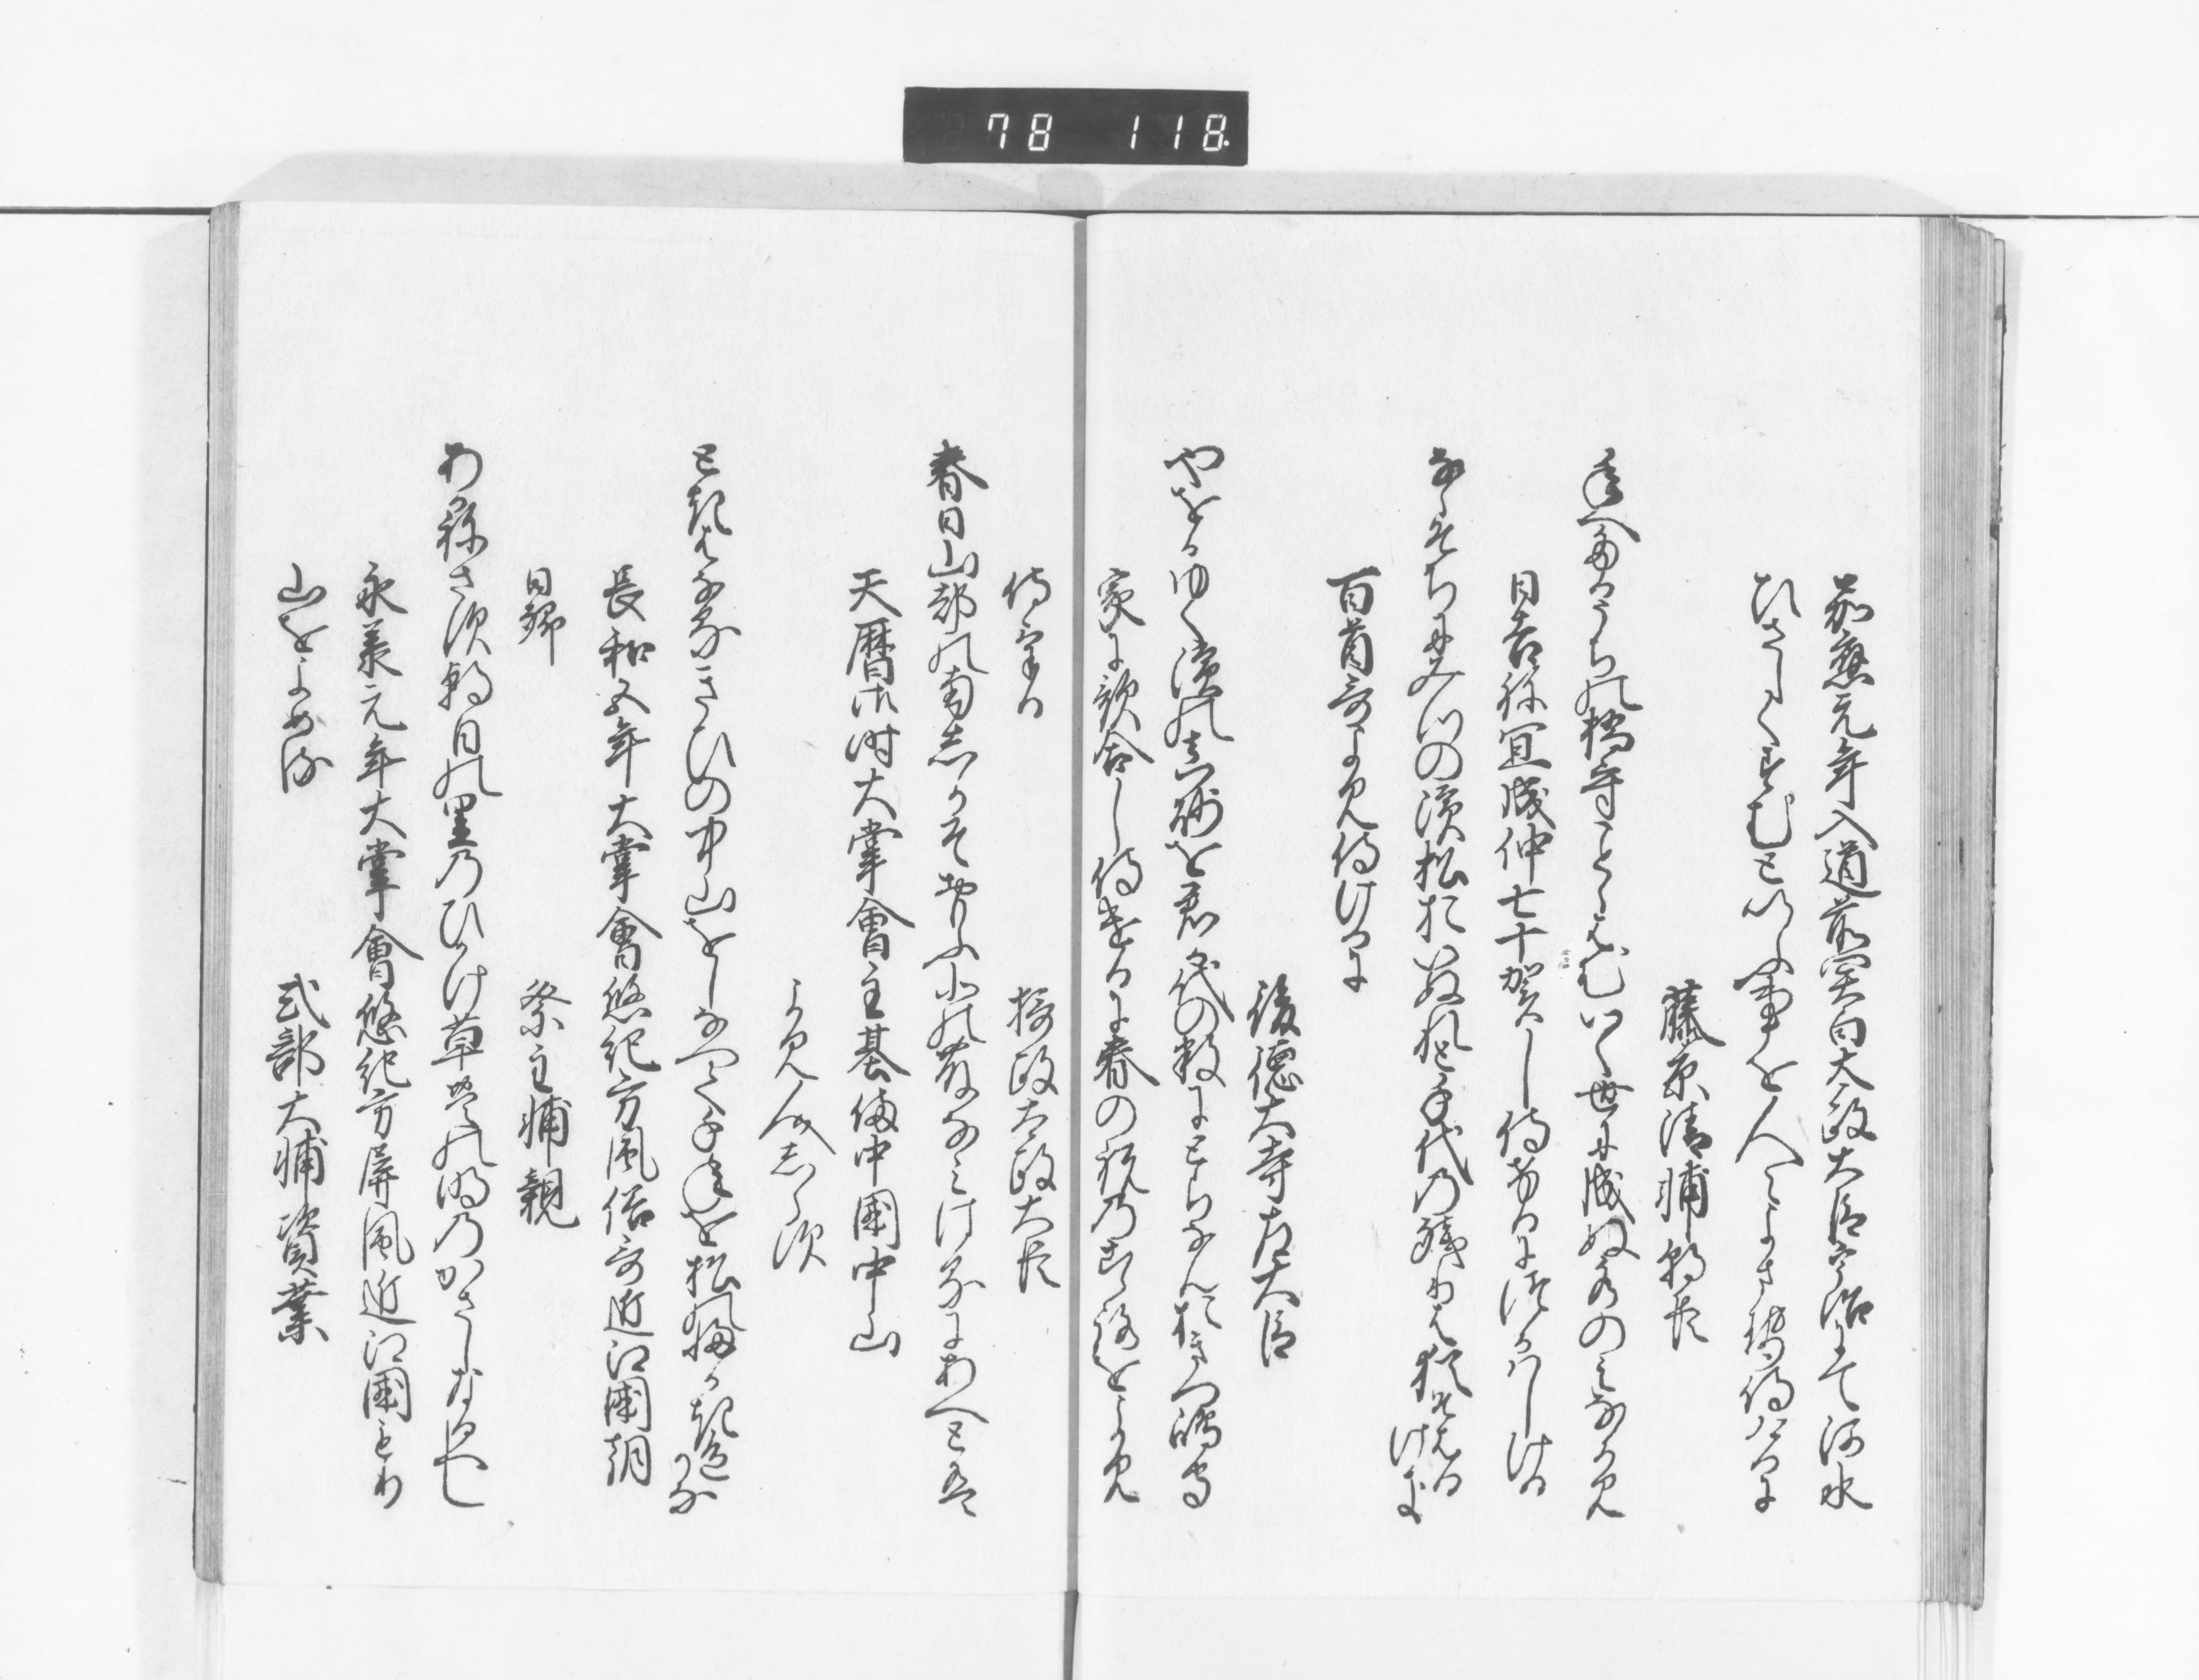 78 118
嘉應元年入道前関白太政大臣宇治にて河水
ひさしくすむといふ事を人々よませ侍けるに
藤原清輔朝臣
年へたるうちの橋守ことゝはむいく世に成ぬ水のみなかみ
日吉祢宜成仲七十賀し侍けるにつかはしける
なゝそちにみつの濱松おいぬれと千代の残りは猶そはるけき
百首哥よみ侍けるに
後徳大寺左大臣
やをかゆく濱の真砂を君か代の数にとらなんおきつ嶋守
家に歌合し侍けるに春の祝のこゝろをよみ
侍ける
摂政太政大臣
春日山都の南しかそおもふ北の藤なみ春にあへとは
天暦御時大甞會主基備中國中山
よみ人しらす
ときはなるきひの中山をしなへて千とせを松の深き色かな
長和五年大甞會悠紀方風俗哥近江國朝
日郷
祭主輔親
あかねさす朝日の里のひかけ草豊の明のかさしなるへし
永承元年大甞會悠紀方屏風近江國もり
山をよめる
式部大輔資業